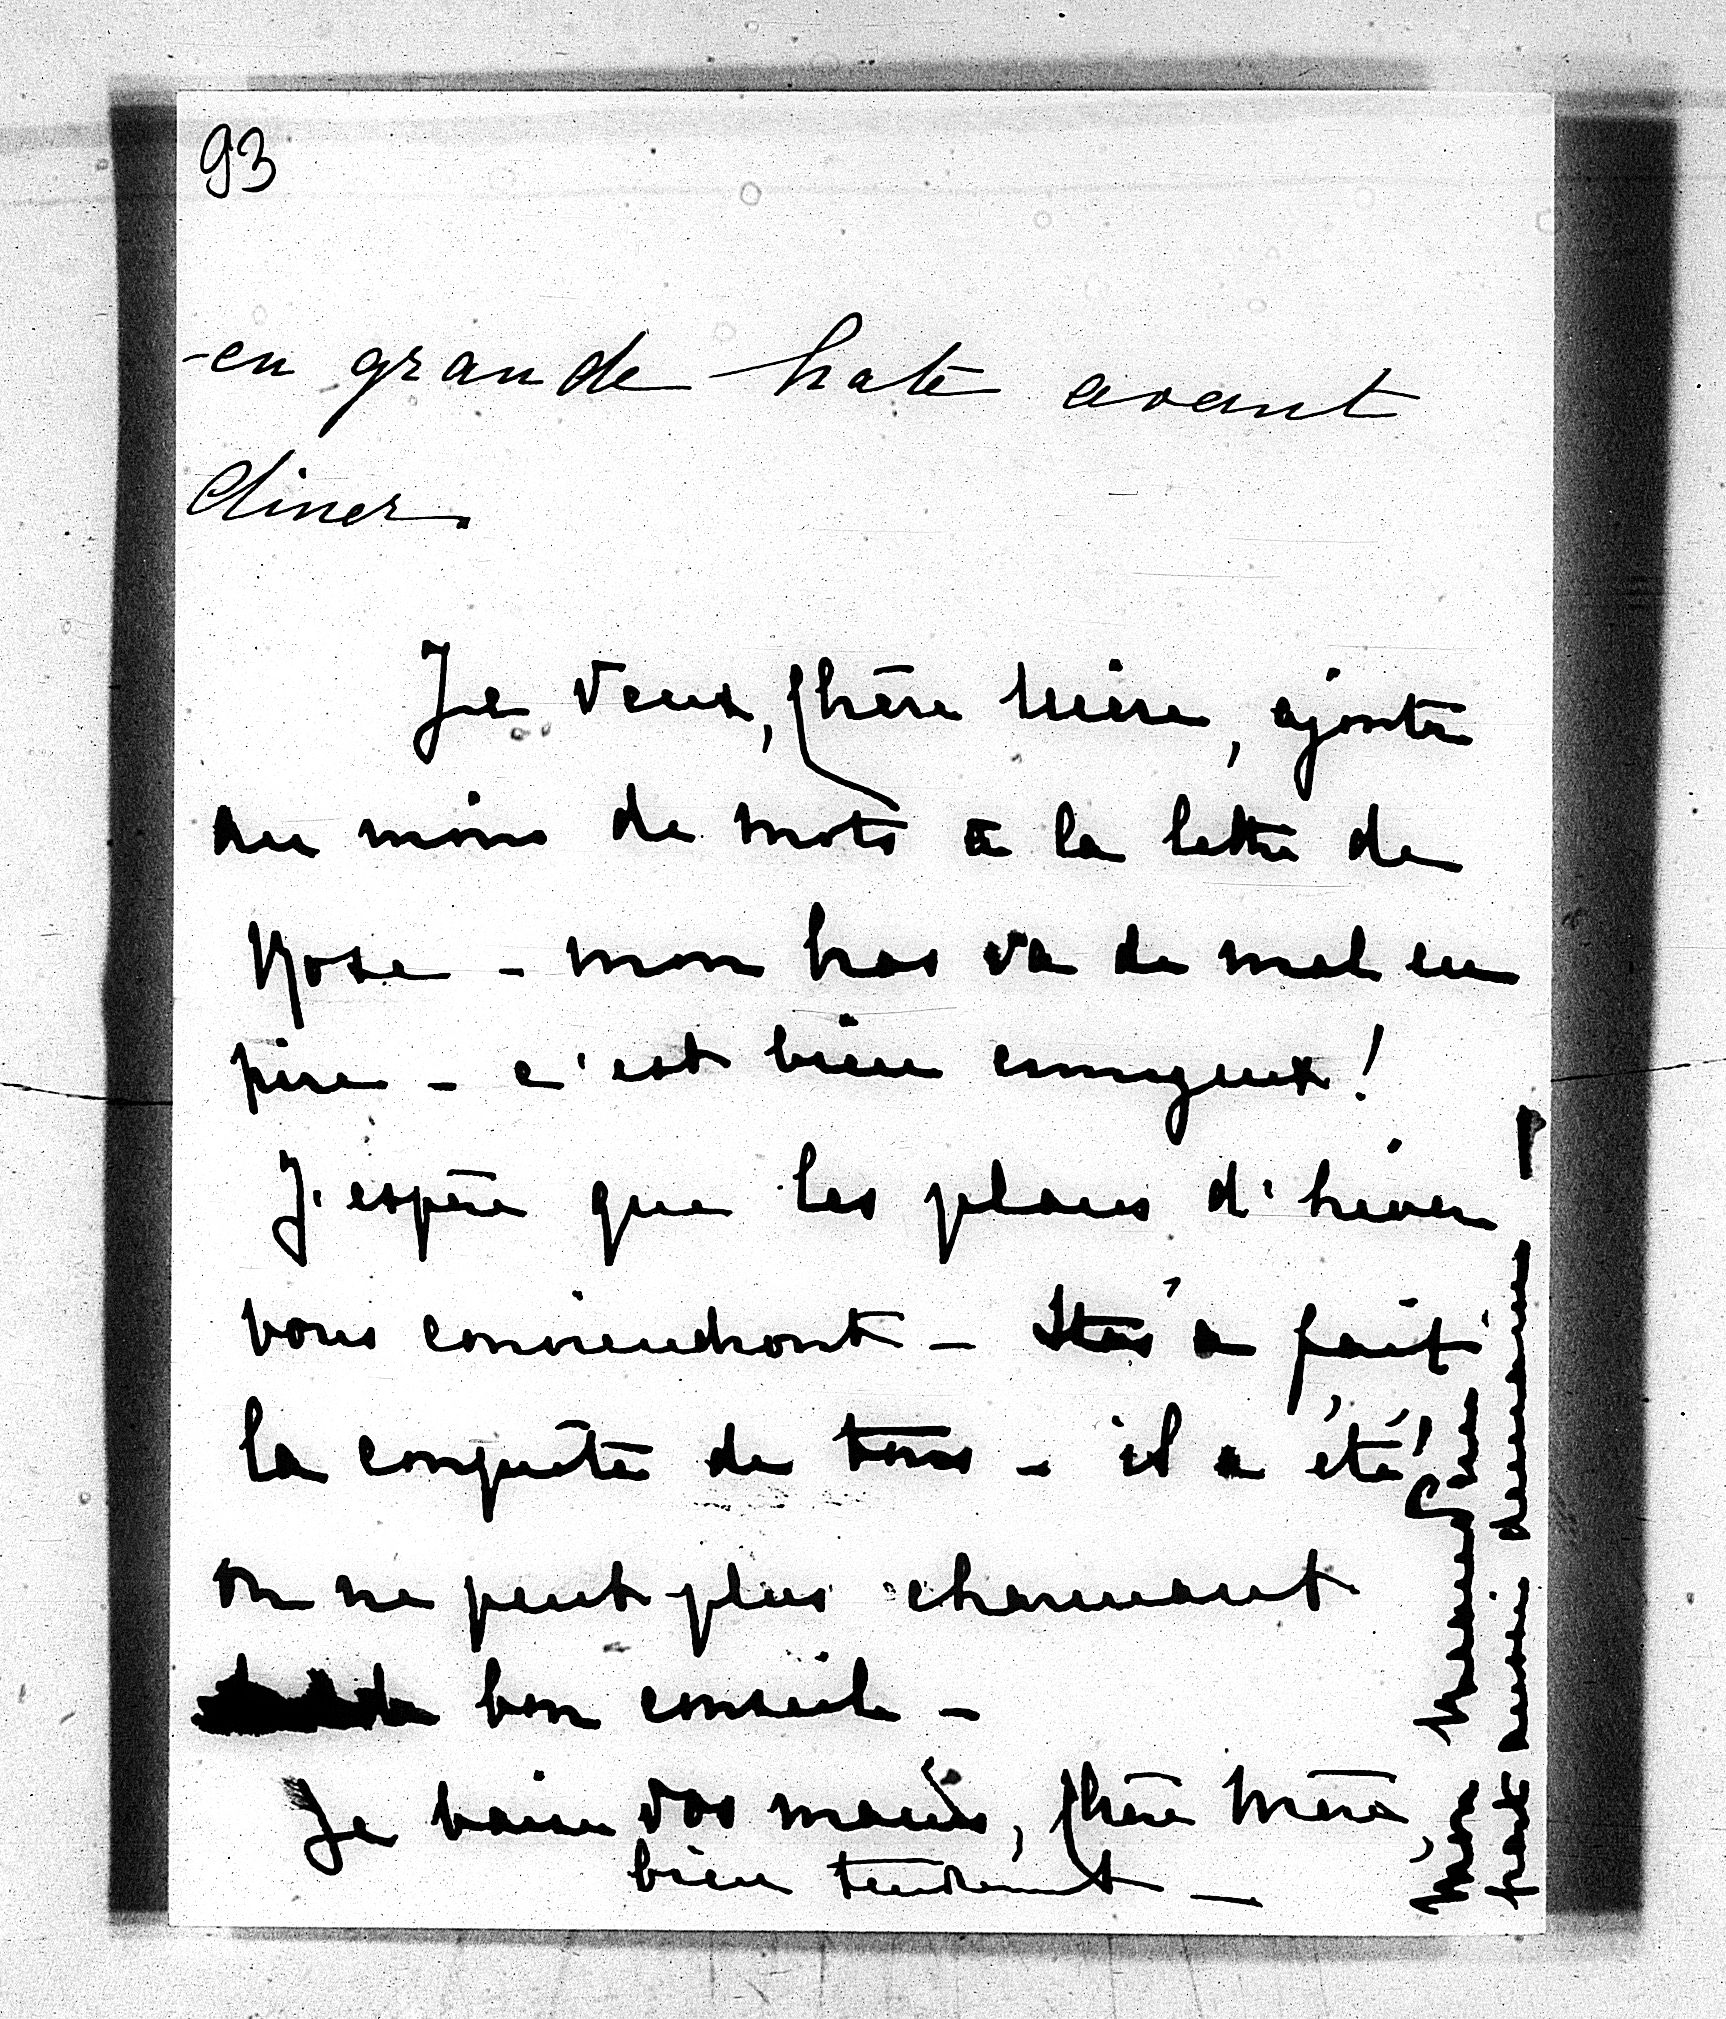 93
en grande hate avant
diner.
Je veux, chère mère, ajouter
au moins de mots à la lettre de
Rose - mon bras va de mal en
pire - c'est bien ennuyeux!
J'espère que les plans d'hiver
vous conviendront - a fait
la conquête de tous - il a été
on ne peut plus charmant
bon conseil -
Je baise vos mains, chère mère,
bien tendrement -
Mon
part aussi demain -